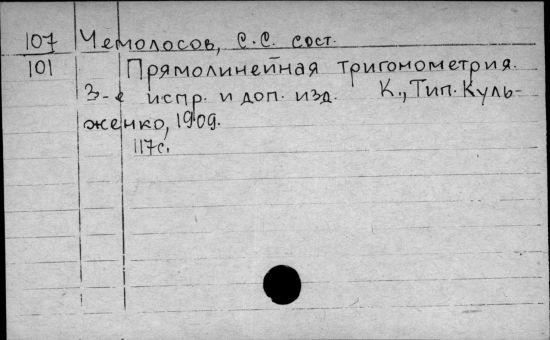 107 Чемолосов, С.С. сост.
101 Прямолинейная тригонометрия.
3-е испр. и доп. изд. К., Тип. Куль-
женко, 1909.
117с.